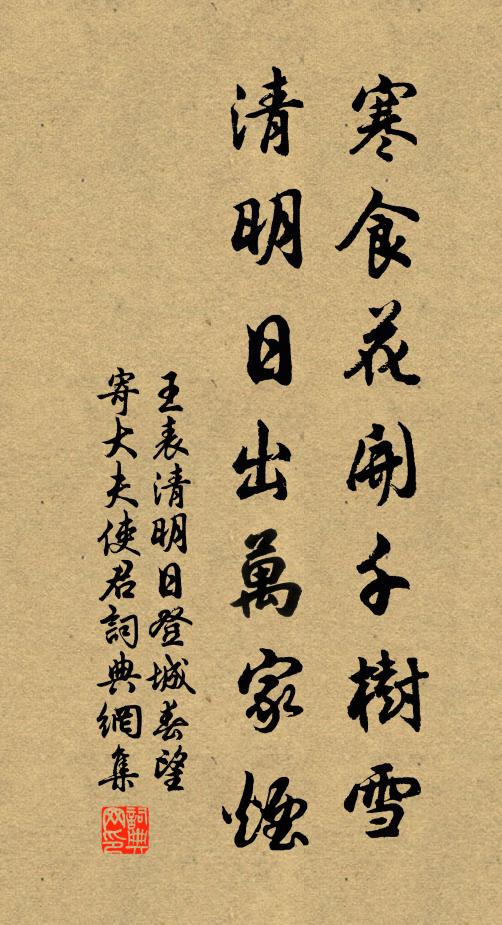 寒食花開千樹雪
清明日出萬家煙
王表清明日登城春望
寄大夫使君詞典網集
詞典
網印